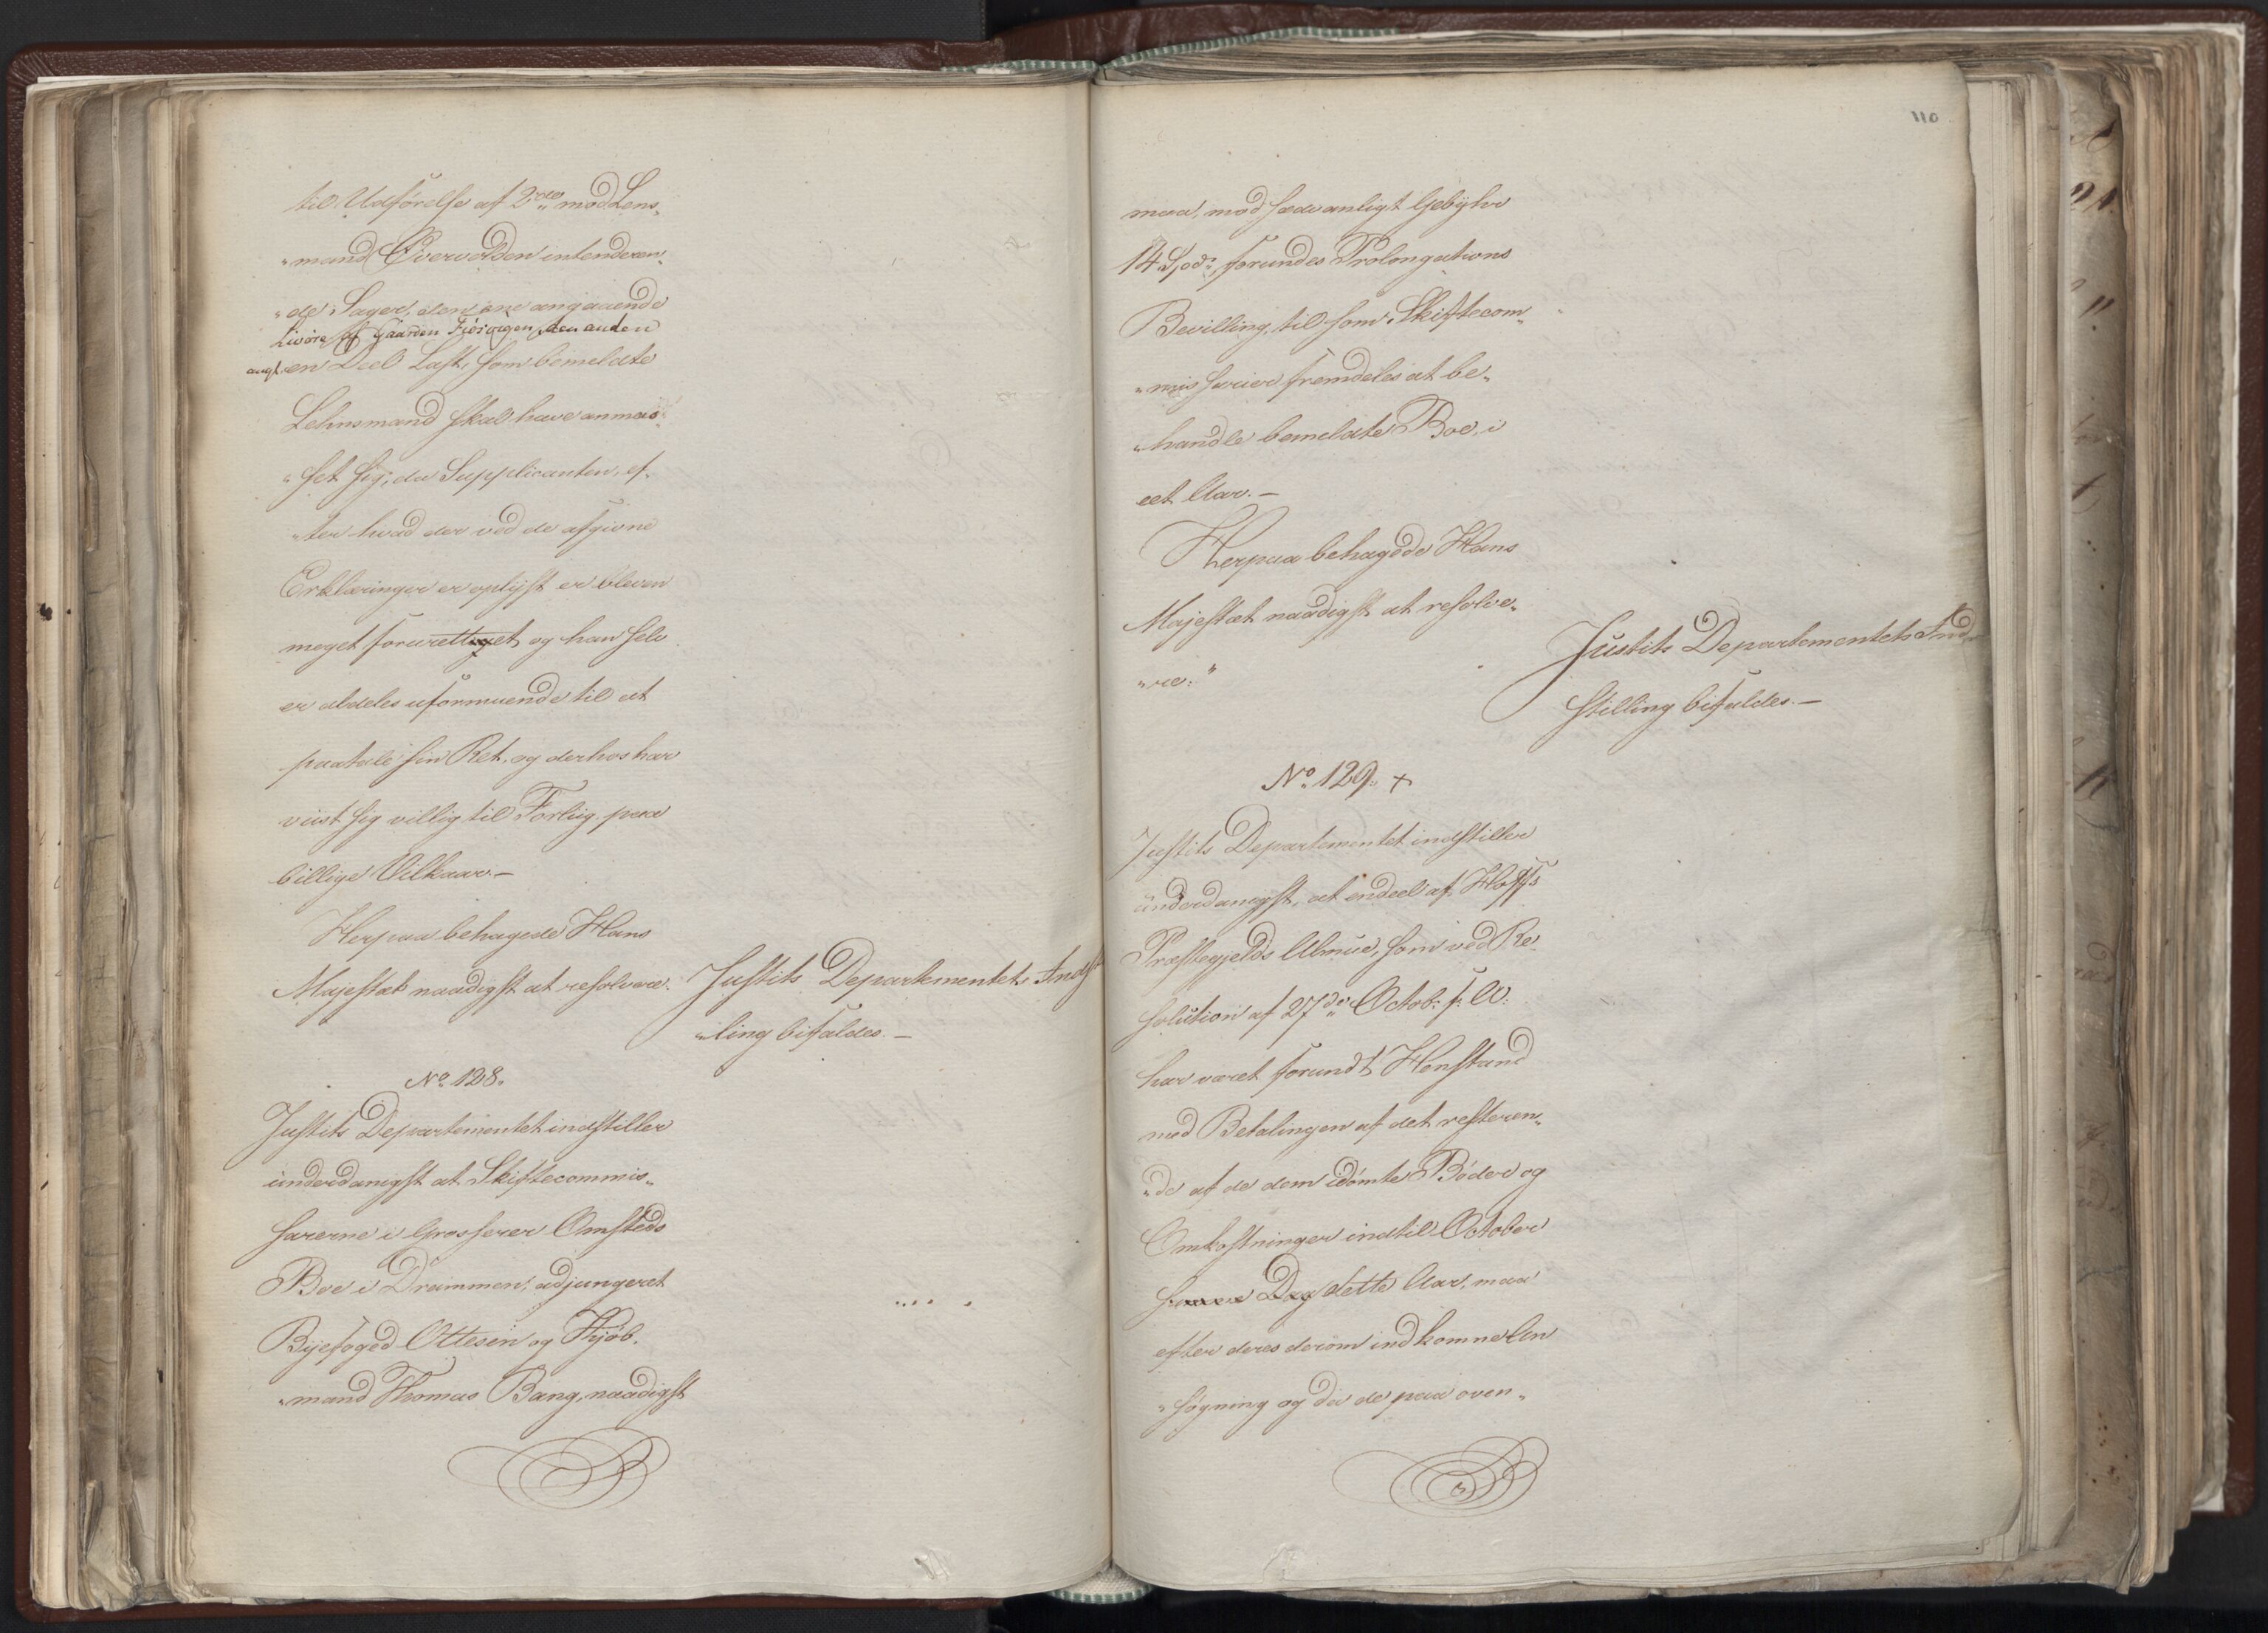 til Udførelse af 2de mod Lens„
„mand Øververlden intenderen„
„de Sager, den ene angaaende
af Gaarden den anden
angl. en Deel Last, som bemeldte
Lehnsmand skal have anmas„
„set sig; da Supplicanten, ef„
„ter hvad der ved de afgivne
Erklæringer er oplyst er bleven
meget forurettiget og han selv
er aldeles uformuende til at
paatale sin Ret, og derhos har
viist sig villig til Forliig paa
billige Vilkaar.—
Herpaa behagede Hans
Majestæt naadigst at resolvere.
Justits Departementets Indst
„ling bifaldes.—
No 128.
Justits Departementet indstiller
underdanigst at Skiftecommis„
sairerne i Grosserer Omsteds
Boe i Drammen, adjungeret
Byefoged Ottesen og Kjøb„
„mand Thomas Bang, naadigst
110
maa, mod sædvanligt Gebyhr
14 Spd., forundes Prolongations
Bevilling, til som Skiftecom„
„missairer fremdeles at be„
„handle bemeldte Boe, i
eet Aar.—
Herpaa behagede Hans
Majestæt naadigst at resolve„
„re:"
Justits Departementets Ind„
stilling bifaldes.—
No 129. +
Justits Departementet indstiller
underdanigst, at endeel af Hoffs
Præstegjelds Almue, som ved Re„
solution af 27de Octob: f. A.
har været forundt Henstand
med Betalingen af det resteren„
„de af de dem idømte Bøder og
Omkostninger indtil October
samme Dag dette Aar, maa
efter deres derom indkomne An
„søgning og da de paa oven„